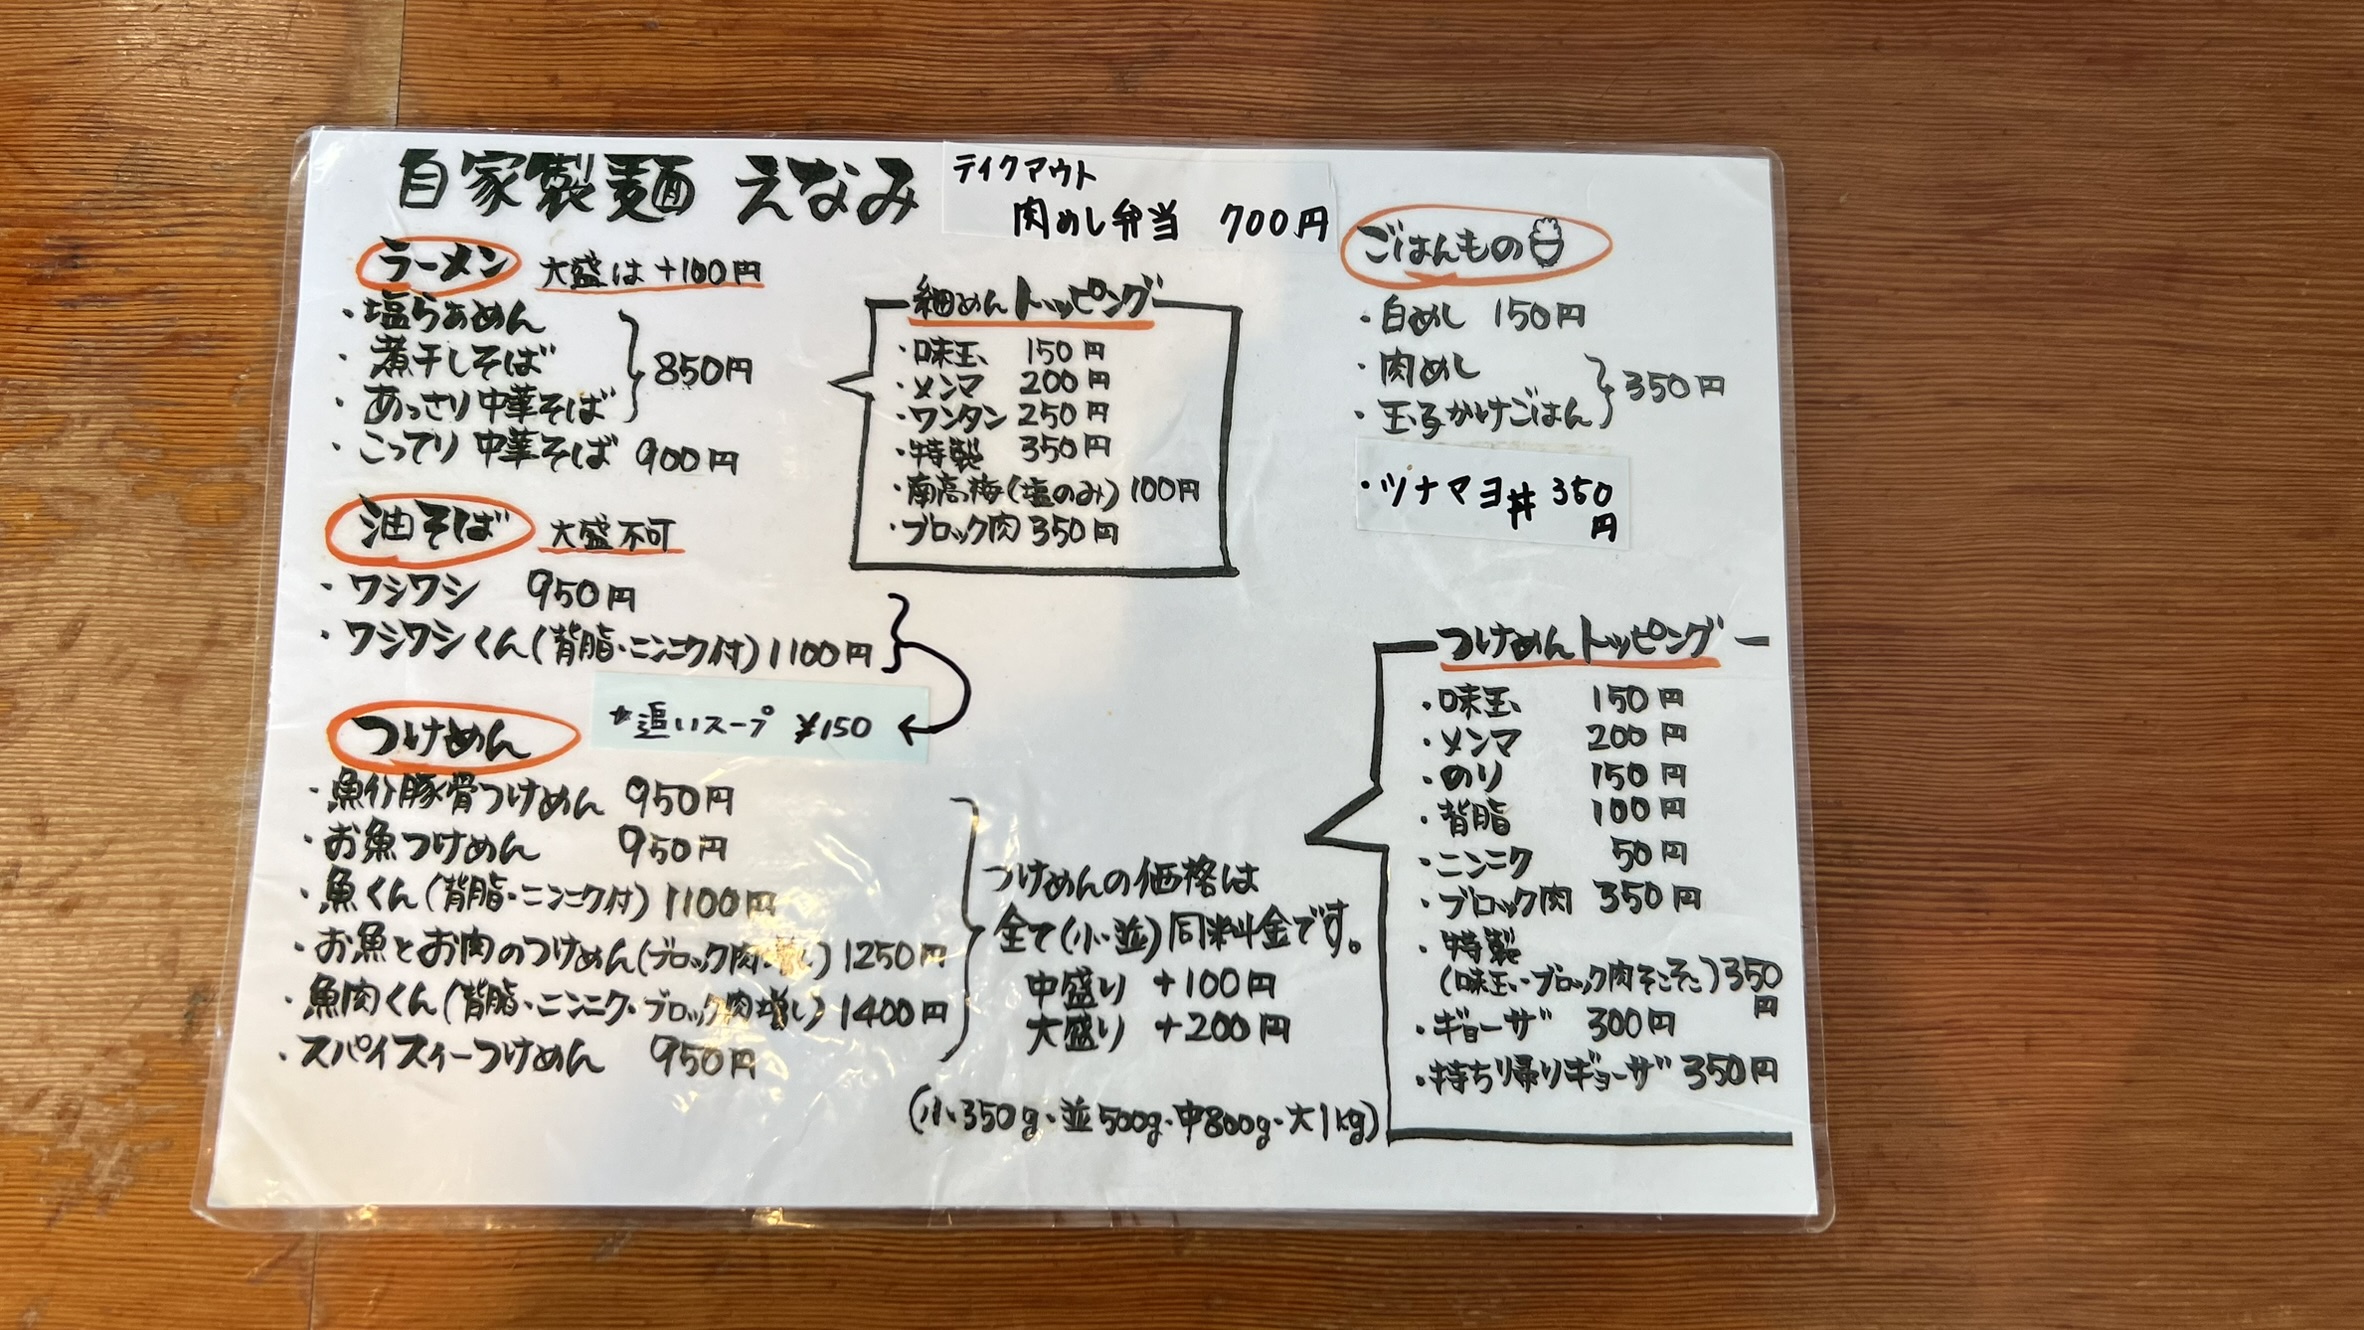 自家製麺 えなみ
テイクアウト
肉めし弁当 700円
ラーメン 大盛は+100円
・塩らぁめん
・煮干しそば
・あっさり中華そば
850円
・こってり中華そば 900円
油そば 大盛不可
・ワシワシ 950円
・ワシワシくん(背脂・ニンニク付)1100円
*追いスープ ¥150
つけめん
・魚介豚骨つけめん 950円
・お魚つけめん 950円
・魚くん(背脂・ニンニク付)1100円
・お魚とお肉のつけめん(ブロック肉増し)1250円
・魚肉くん(背脂・ニンニク・ブロック肉増し)1400円
・スパイスィーつけめん 950円
つけめんの価格は
全て(小・並)同料金です。
中盛り +100円
大盛り +200円
(小350g・並500g・中800g・大1kg)
細めんトッピング
・味玉 150円
・メンマ 200円
・ワンタン 250円
・特製 350円
・南高梅(塩のみ)100円
・ブロック肉 350円
ごはんもの
・白めし 150円
・肉めし
・玉子かけごはん
350円
・ツナマヨ丼 350
円
つけめんトッピング
・味玉 150円
・メンマ 200円
・のり 150円
・背脂 100円
・ニンニク 50円
・ブロック肉 350円
・特製
(味玉・ブロック肉そこそこ)350
円
・ギョーザ 300円
・持ち帰りギョーザ 350円